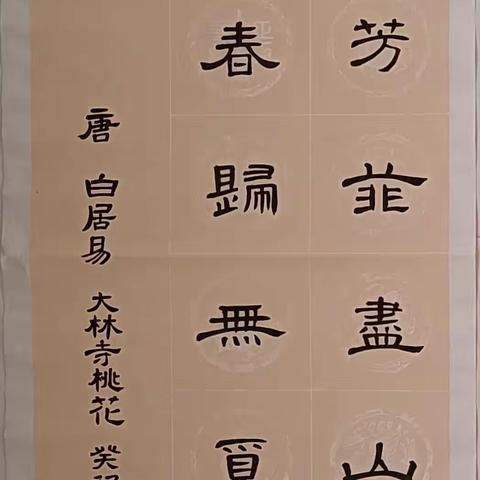 芳菲盡山
春歸無覓
唐 白居易 大林寺桃花 癸